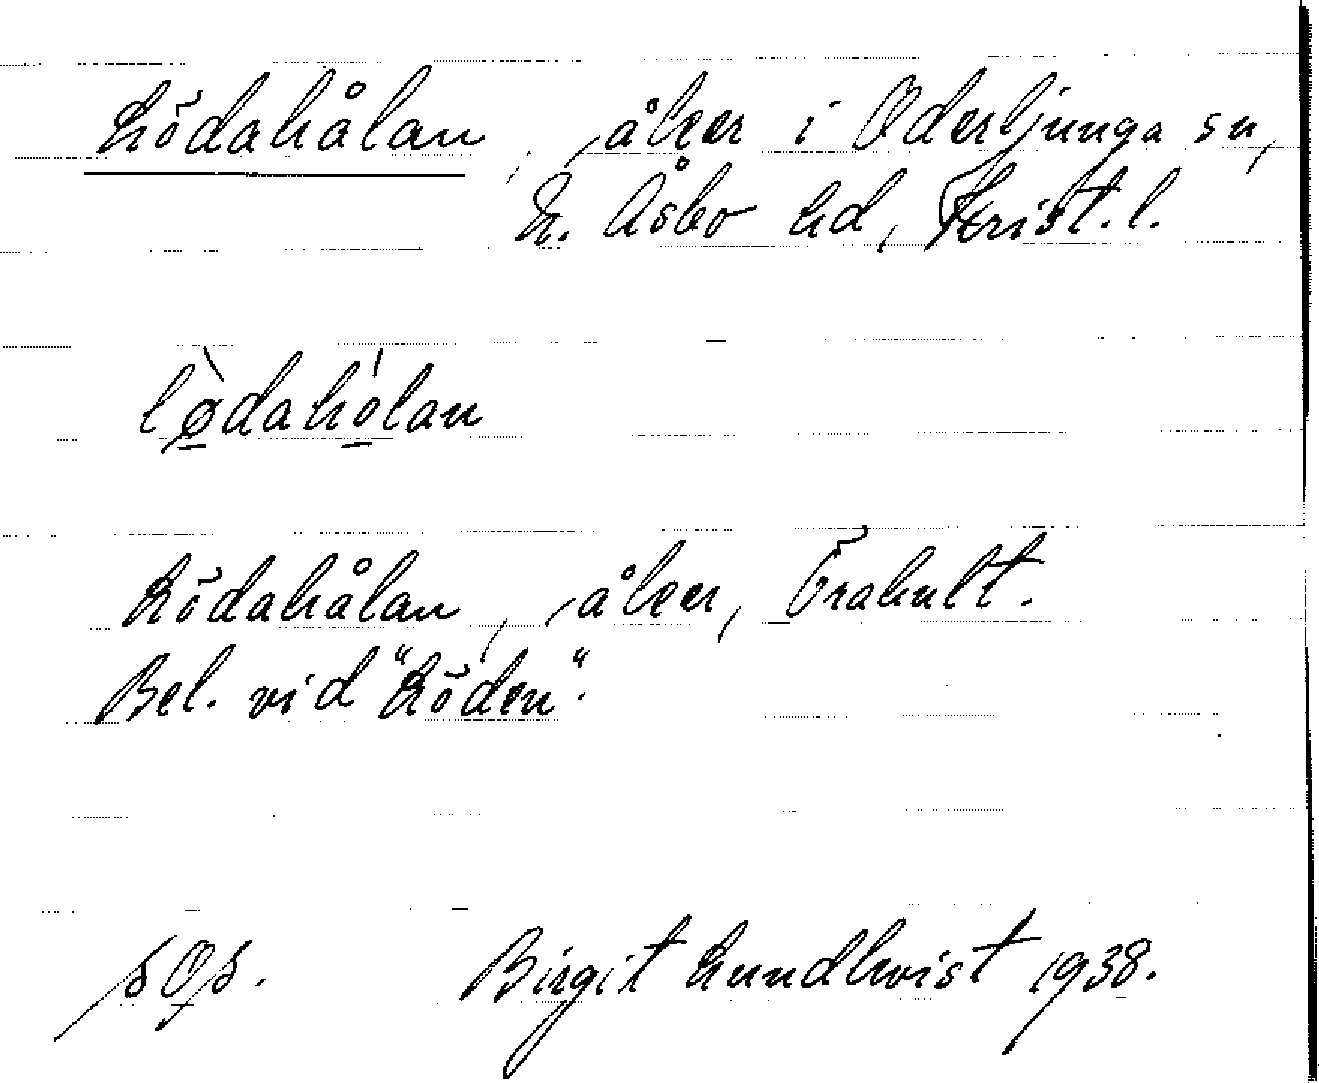 Lödahålan, åker i Oderljunga sn,
N. Åsbo hd, Krist. l.
lø̀daho̍lan
Lödahålan, åker, Örahult.
Bel. vid "Löden".
Birgit Lundkvist 1938.